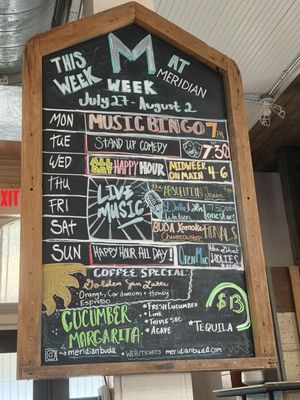 THIS WEEK
M
AT MERIDIAN
WEEK
July 27 - August 2
MON MUSIC BINGO 7PM
TUE STAND UP COMEDY 7:30
WED ALL DAY HAPPY HOUR MIDWEEK ON MAIN 4-6
THU LIVE MUSIC the RESOLUTION
FRI Jake Watson 7:30 Lonestar
SAT BUDA Karaoke Championship FINALS
SUN HAPPY HOUR ALL DAY! Open Mic
COFFEE SPECIAL
Golden Sun Latte
Orange, Cardamom + Honey
Espresso
CUCUMBER
MARGARITA
*FRESH CUCUMBER
*LIME
*AGAVE
$13
*TEQUILA
@meridianbuda WEB/TICKETS meridianbuda.com
EXIT